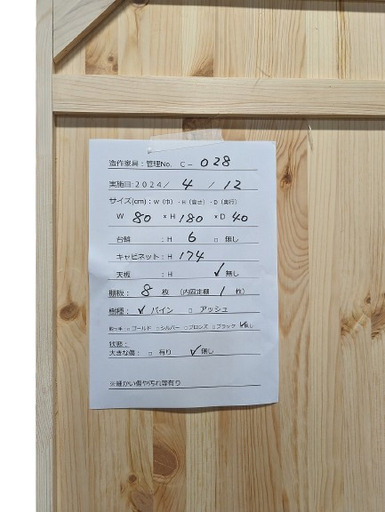 造作家具：管理No. C－028
実施日：2024／ 4 ／ 12
サイズ(cm)：W（巾）・H（高さ）・D（奥行）
W 80 × H 180 × D 40
台輪 ：H 6 □ 無し
キャビネット：H 174
天板 ：H ✓ 無し
棚板： 8 枚 （内固定棚 1 枚）
樹種： ✓ パイン □ アッシュ
□ゴールド □シルバー □ブロンズ □ブラック ✓無し
状態：
大きな傷： □ 有り ✓ 無し
※細かい傷や汚れ等有り